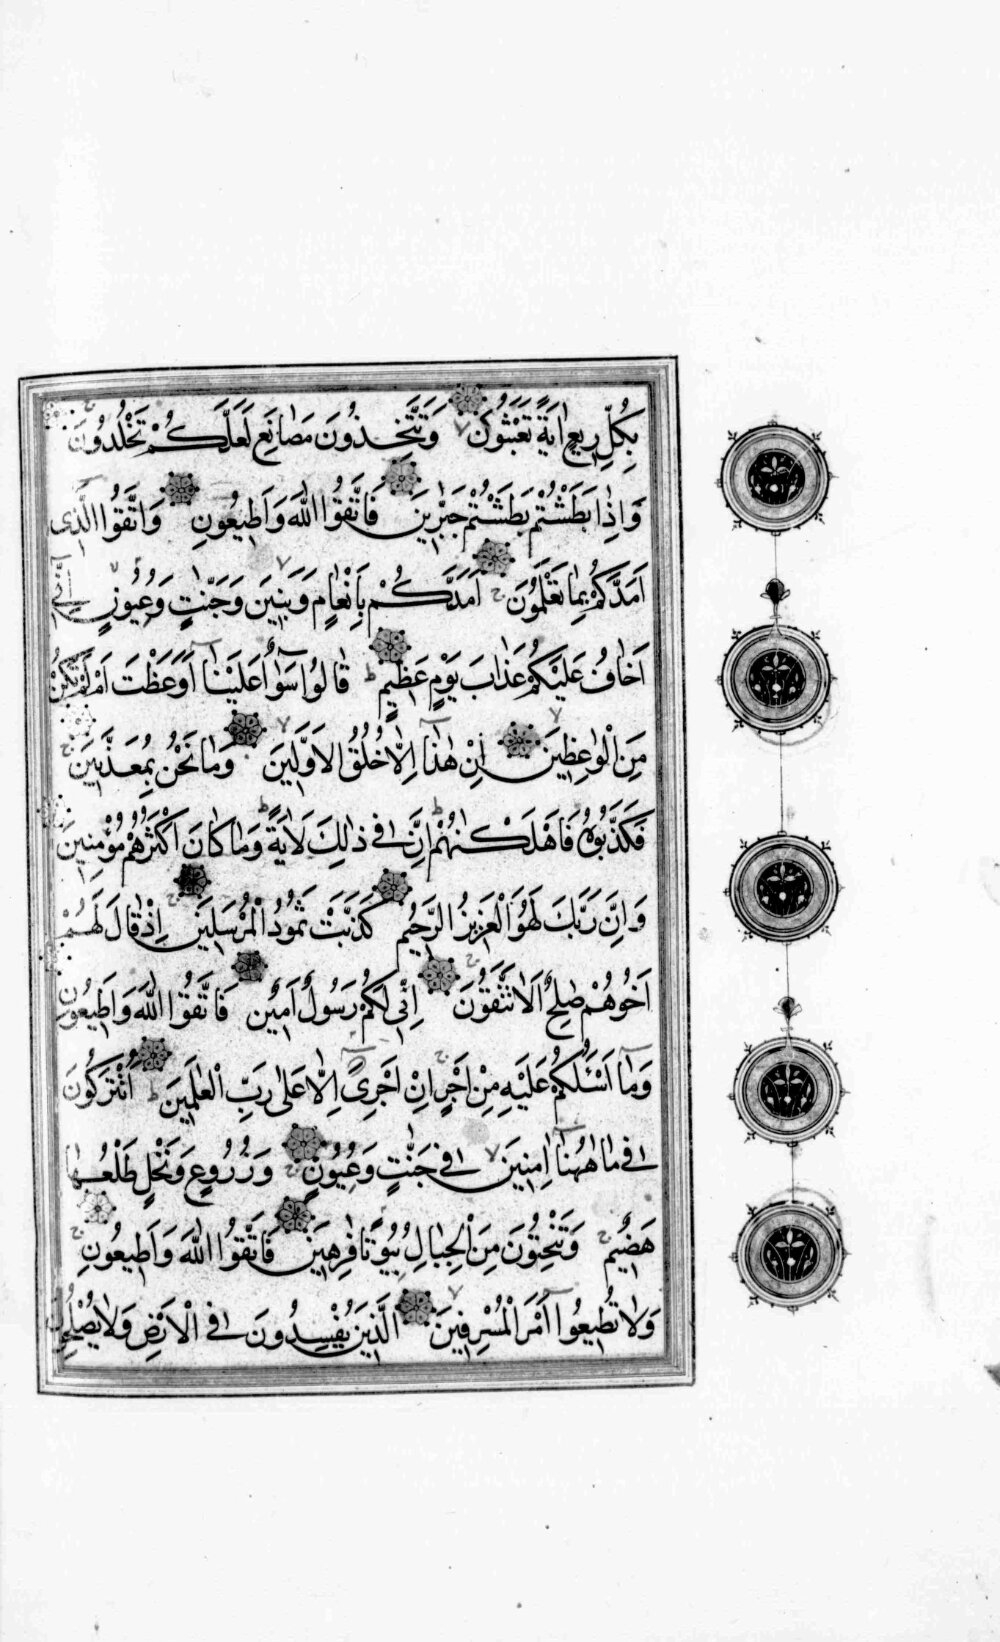 بِكُلِّ رِيعٍ اٰيَةً تَعْبَثُونَ وَتَتَّخِذُونَ مَصَانِعَ لَعَلَّكُمْ تَخْلُدُونَ
وَاِذَا بَطَشْتُمْ بَطَشْتُمْ جَبَّٰرِينَ فَاتَّقُوا اللّٰهَ وَاَطِيعُونِ وَاتَّقُوا الَّذِى
اَمَدَّكُمْ بِمَا تَعْلَمُونَ اَمَدَّكُمْ بِاَنْعَامٍ وَبَنِينَ وَجَنّٰتٍ وَعُيُونٍ اِنِّى
اَخَافُ عَلَيْكُمْ عَذَابَ يَوْمٍ عَظِيمٍ قَالُوا سَوَاءٌ عَلَيْنَا اَوَعَظْتَ اَمْ لَمْ تَكُنْ
مِنَ الْوَاعِظِينَ اِنْ هٰذَا اِلَّا خُلُقُ الْاَوَّلِينَ وَمَا نَحْنُ بِمُعَذَّبِينَ
فَكَذَّبُوهُ فَاَهْلَكْنٰهُمْ اِنَّ فِى ذٰلِكَ لَاٰيَةً وَمَا كَانَ اَكْثَرُهُمْ مُؤْمِنِينَ
وَاِنَّ رَبَّكَ لَهُوَ الْعَزِيزُ الرَّحِيمُ كَذَّبَتْ ثَمُودُ الْمُرْسَلِينَ اِذْ قَالَ لَهُمْ
اَخُوهُمْ صٰلِحٌ اَلَا تَتَّقُونَ اِنِّى لَكُمْ رَسُولٌ اَمِينٌ فَاتَّقُوا اللّٰهَ وَاَطِيعُونِ
وَمَا اَسْـَٔلُكُمْ عَلَيْهِ مِنْ اَجْرٍ اِنْ اَجْرِىَ اِلَّا عَلٰى رَبِّ الْعٰلَمِينَ اَتُتْرَكُونَ
فِى مَا هٰهُنَا اٰمِنِينَ فِى جَنّٰتٍ وَعُيُونٍ وَزُرُوعٍ وَنَخْلٍ طَلْعُهَا
هَضِيمٌ وَتَنْحِتُونَ مِنَ الْجِبَالِ بُيُوتًا فَارِهِينَ فَاتَّقُوا اللّٰهَ وَاَطِيعُونِ
وَلَا تُطِيعُوا اَمْرَ الْمُسْرِفِينَ الَّذِينَ يُفْسِدُونَ فِى الْاَرْضِ وَلَا يُصْلِحُونَ